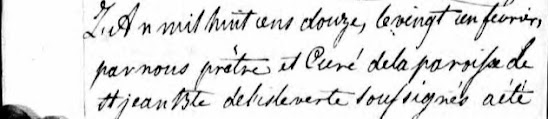 L'An mil huit cens douze, le vingt un février,
par nous prêtre et Curé de la paroisse de
St jean Bte de l'isle verte soussignés a été